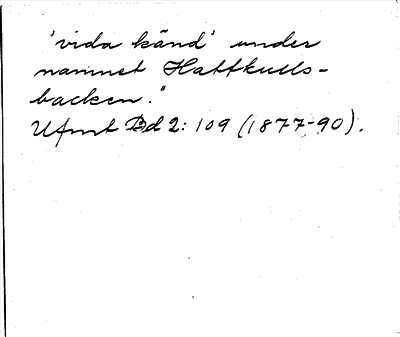 'vida känd' under
namnet Hattkulls-
backen."
Ufmt Bd 2: 109 (1877-90).